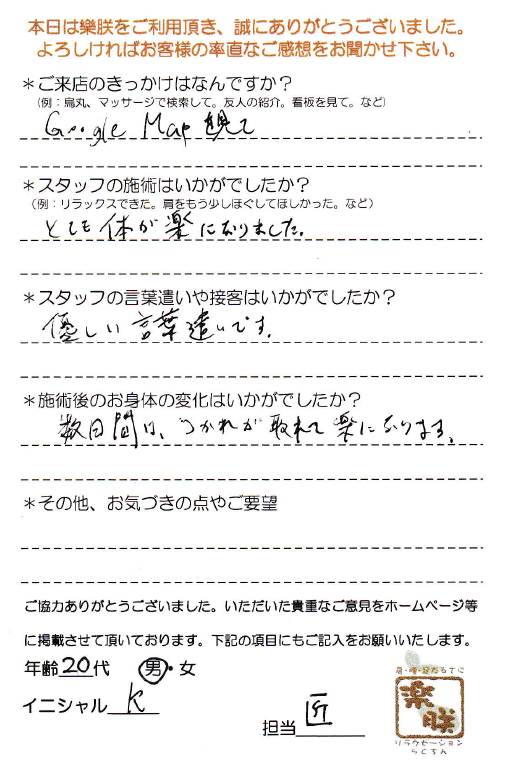 本日は樂朕をご利用頂き、誠にありがとうございました。
よろしければお客様の率直なご感想をお聞かせ下さい。
＊ご来店のきっかけはなんですか？
（例：烏丸、マッサージで検索して。友人の紹介。看板を見て。など）
Google Map 観て
＊スタッフの施術はいかがでしたか？
（例：リラックスできた。肩をもう少しほぐしてほしかった。など）
とても体が楽になりました。
＊スタッフの言葉遣いや接客はいかがでしたか？
優しい言葉遣いです。
＊施術後のお身体の変化はいかがでしたか？
数日間は、つかれが取れて楽になります。
＊その他、お気づきの点やご要望
ご協力ありがとうございました。いただいた貴重なご意見をホームページ等
に掲載させて頂いております。下記の項目にもご記入をお願いいたします。
年齢20代 男・女
イニシャル K
担当 匠
楽朕
リラクゼーション
らくちん